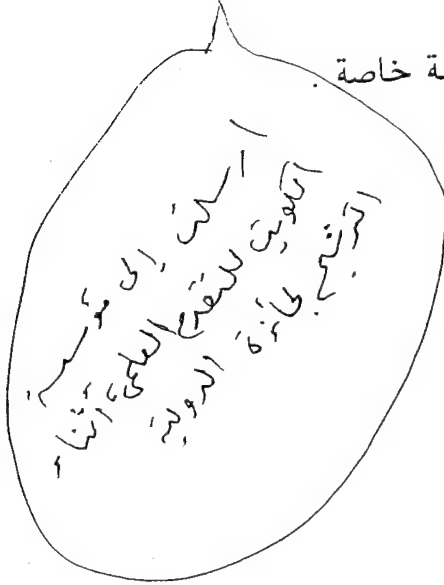 ة خاصة .
أرسلت إلى مؤسسة
الكويت للتقدم العلمى أثناء
الترشيح لجائزة الدولية